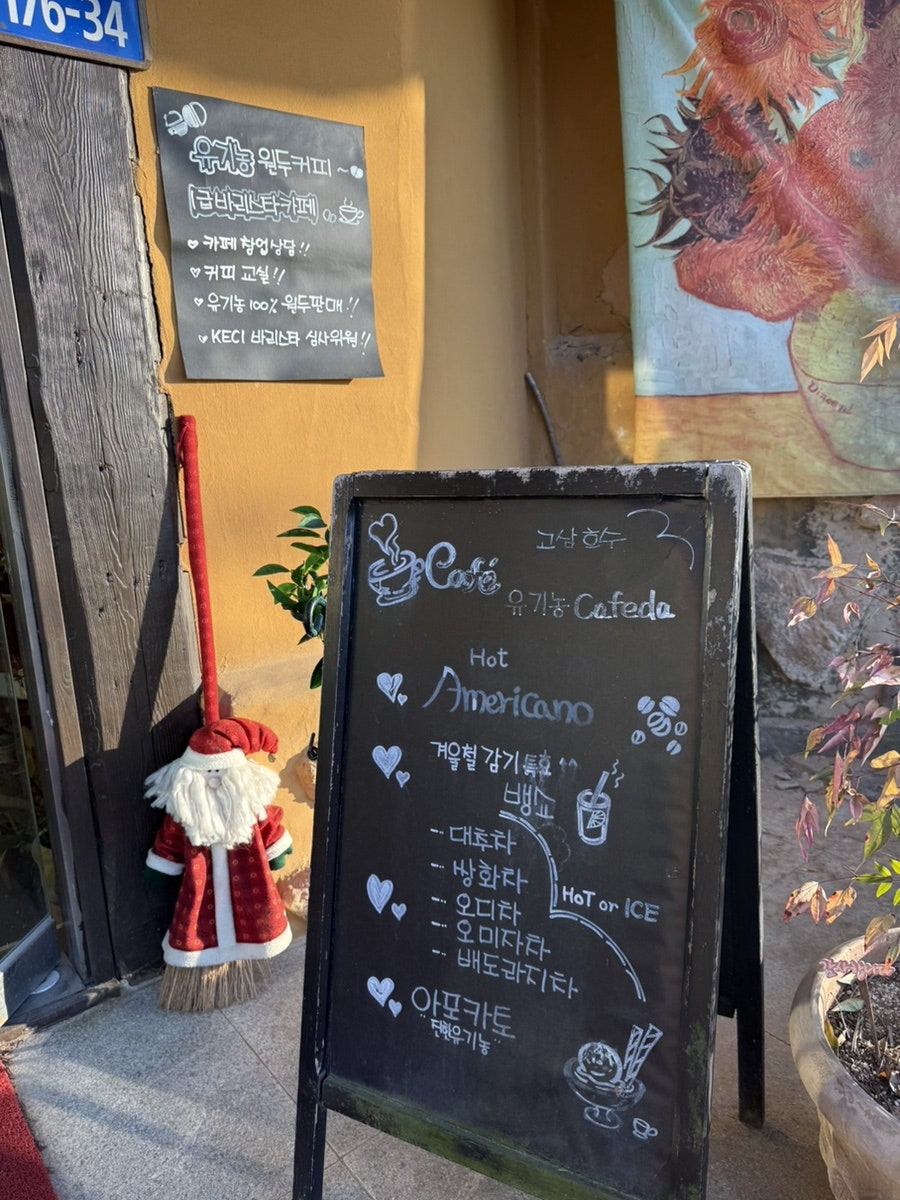 176-34
유기농 원두커피 ~
1급바리스타카페
카페 창업상담!!
커피 교실!!
유기농 100% 원두판매!!
KECI 바리스타 심사위원!!
Vincent
Café
유기농 Cafeda
Hot
Americano
겨울철 감기특효 ↑↑
뱅쇼
대추차
쌍화차
오디차
오미자차
배도라지차
HoT or ICE
아포카토